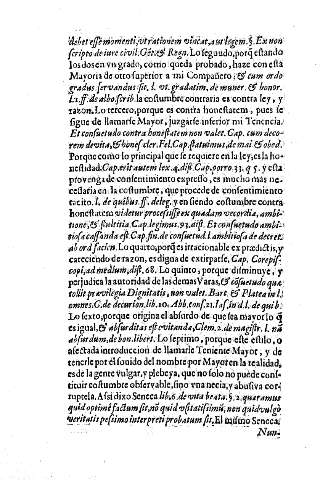 debet esse momenti, vt rationem vincat, aut legem. §. Ex non
scripto de iure civil. Gẽt. & Reg. Lo segundo, porq̃ estando
los dos en vn grado, como queda probado, haze con esta
Mayoria de otro superior a mi Compañero, & cum ordo
gradus servandus sit, l. vt. gradatim, de muner. & honor.
L1. ff. de albo scrib. la costumbre contrario es contra ley, y
razon. Lo tercero, porque es contra honestatem, pues se
sigue de llamarse Mayor, juzgarse inferior mi Tenencia.
Et consuetudo contra honestatem non valet. Cap. cum deco-
rem de vita, & honest. cler. Fel. Cap. statuimus, de mai. & obed.
Porque como lo principal que se requiere en la ley, es la ho-
nestidad. Cap. erit autem lex 4. dist. Cap. porro 33. q. 5. y esta
provenga de consentimiento expreso, es mucho mas ne-
cessaria en la costumbre, que procede de consentimiento
tacito. l. de quibus ff. de leg. y en siendo costumbre contra
honestatem videtur processisse ex quadam vecordia, ambi-
tione, & stultitia Cap. legimus 93. dist. Et consuetudo ambi-
tiosa cassanda est Cap. fin. de consuetud. l. ambitiosa de decret.
ab ord. facien. Lo quarto, porq̃ es irracionable ex prædictis, y
careciendo de razon, es digna de extirparse, Cap. Corepis-
copi, ad medium, dist. 68. Lo quinto, porque disminuye, y
perjudica la autoridad de las demas Varas, & consuetudo quæ
tollit privilegia Dignitatis, non valet. Bart. & Platea in l.
omnes. G. de decurion. lib. 10. Alb. conf. 21. Ias. in d. l. de quib.
Lo sexto, porque origina el absurdo de que sea mayor lo q̃
es igual, & absurditas est evitanda, Clem. 2. de magistr. l. nã
absurdum, de bon. libert. Lo septimo, porque este estilo, o
afectada introduccion de llamarse Teniente Mayor, y de
tenerle por el sonido del nombre por Mayor en la realidad,
es de la gente vulgar, y plebeya, que no solo no puede cons-
tituir costumbre observable, sino vna necia, y abusiva cor-
ruptela. Assi dixo Seneca lib. 6. de vita beata. §. 2. quæramus
quid optimè factum sit, nõ quid vsitatissimũ, non quid vulgo
veritatis pessimo interpreti probatum sit. El mismo Seneca
Nun-